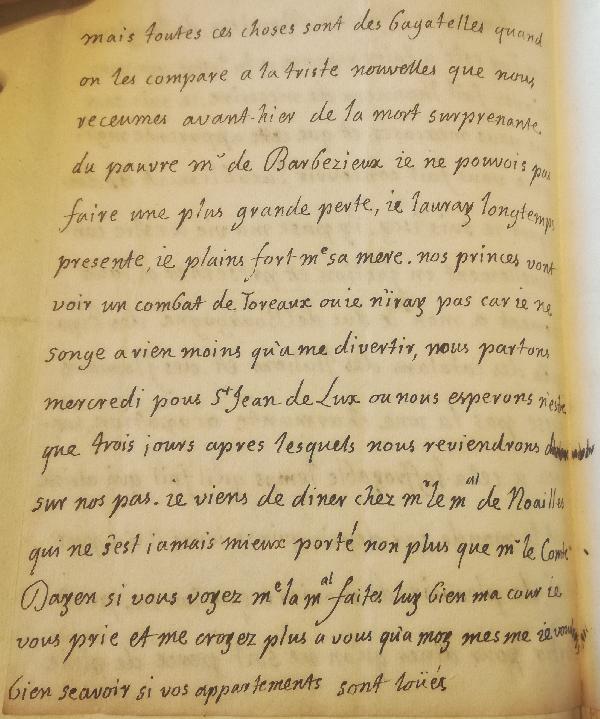 mais toutes ces choses sont des bagatelles quand
on les compare a la triste nouvelles que nous
receumes avant-hier de la mort surprenante
du pauvre mr de Barbezieux ie ne pouvois pas
faire une plus grande perte, ie lauray longtemps
presente, ie plains fort me sa mere. nos princes vont
voir un combat de Toreaux ou ie n'iray pas car ie ne
songe a rien moins qu'a me divertir, nous partons
mercredi pous St Jean de Lux ou nous esperons n'estre
que trois jours apres lesquels nous reviendrons
sur nos pas. ie viens de diner chez mr le mal de Noailles
qui ne s'est jamais mieux porté non plus que mr le Comte
Dayen si vous voyez me la mal faites luy bien ma cour ie
vous prie et me croyez plus a vous qu'a moy mesme ie
bien scavoir si vos appartements sont loüés